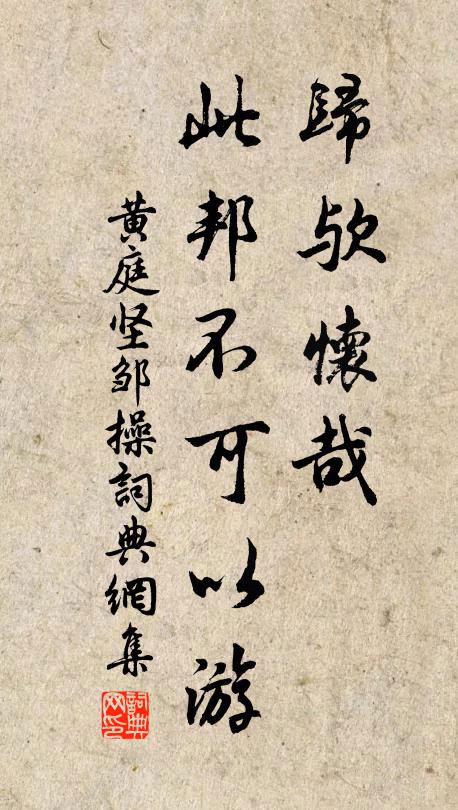 歸欤懷哉
此邦不可以游
黄庭坚邹操詞典網集
詞典
网印